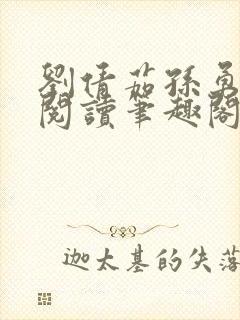 劉倩茹孫勇
閱讀筆趣閣
迦太基的失落